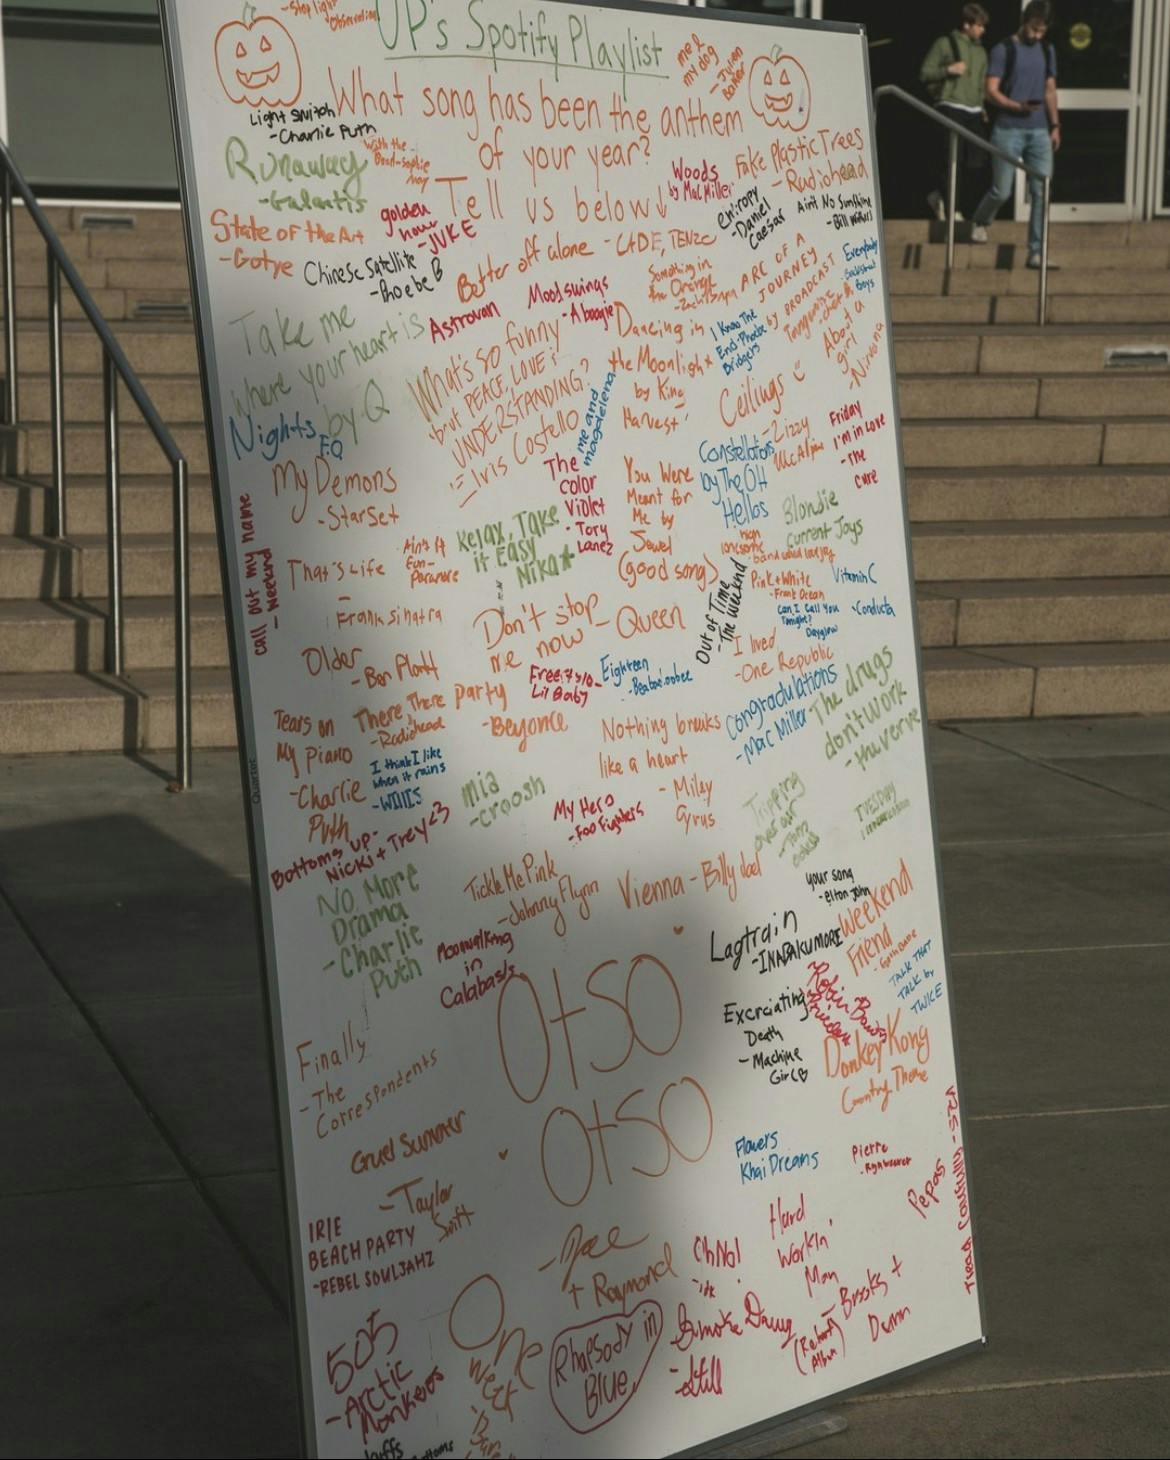 - Stop light
Observations
UP's Spotify Playlist
me &
my dog
- Julien
Baker
What song has been the anthem
of your year?
Tell us below↓
Light Switch
- Charlie Puth
Runaway
- Galantis
with the
Band - Sophie
May
Woods
by Mac Miller
Fake Plastic Trees
- Radiohead
State of the Art
- Gotye
golden
hour
- JVKE
entropy
- Daniel
Caesar
Ain't No Sunshine
- Bill Withers
Chinese Satellite
- Phoebe B
Better off alone - CADE, TENZC
Something in
the Orange
- Zach Bryan
ARC OF A
JOURNEY
by BROADCAST
Everybody
- Backstreet
Boys
Take me
where your heart is
by Q
Astrovan
Mood swings
- A boogie
Dancing in
the Moonlight
by King
Harvest
I Know The
End - Phoebe
Bridgers
About a
girl
- Nirvana
What's so funny
'bout PEACE, LOVE &
UNDERSTANDING?
me and
magdelena
Ceilings
- Lizzy
McAlpine
Nights
F.O
My Demons
- StarSet
The
Color
Violet
- Tory
Lanez
You Were
Meant for
Me by
Jewel
(good song)
Constellations
by The OH
Hellos
Friday
I'm in Love
- The
Cure
Blondie
Current Joys
call out my name
- Weekend
That's Life
-
Frank Sinatra
Ain't It
Fun -
Paramore
Relax, Take
it Easy
Nika
Pink + White
- Frank Ocean
Can I Call You
Tonight?
Dayglow
Vitamin C
Out of Time
- The Weeknd
Older
- Ben Platt
Don't stop
me now - Queen
I lived
- One Republic
There There
- Radiohead
Party
- Beyonce
Lil Baby
Eighteen
Congradulations
- Mac Miller
The drugs
don't work
- the verve
Tears on
My Piano
- Charlie
Puth
I think I like
when it rains
- WILLIS
Nothing breaks
like a heart
- Miley
Cyrus
mia
- croosh
My Hero
- Foo Fighters
Tripping
over air
TUESDAY
Bottoms up -
Nicki + Trey <3
No More
Drama
- Charlie
Puth
Tickle Me Pink
- Johnny Flynn
Vienna - Billy Joel
your song
- elton john
Moonwalking
in
Calabasas
Lagtrain
- INABAKUMORI
Weekend
Friend
TALK THAT
TALK by
TWICE
OtSO
OtSO
Excrciating
Death
- Machine
Girl
Donkey Kong
Country Theme
Finally
- The
Correspondents
Cruel Summer
- Taylor
Swift
Flowers
Khai Dreams
Pierre
Pepas
IRIE
BEACH PARTY
- REBEL SOULJAHZ
+ Raymond
Oh No!
- idk
Hard
Workin'
Man
- Brooks +
Dunn
505
- Arctic
Monkeys
One
Week
Rhapsody in
Blue
Smoke Dawg
- Still